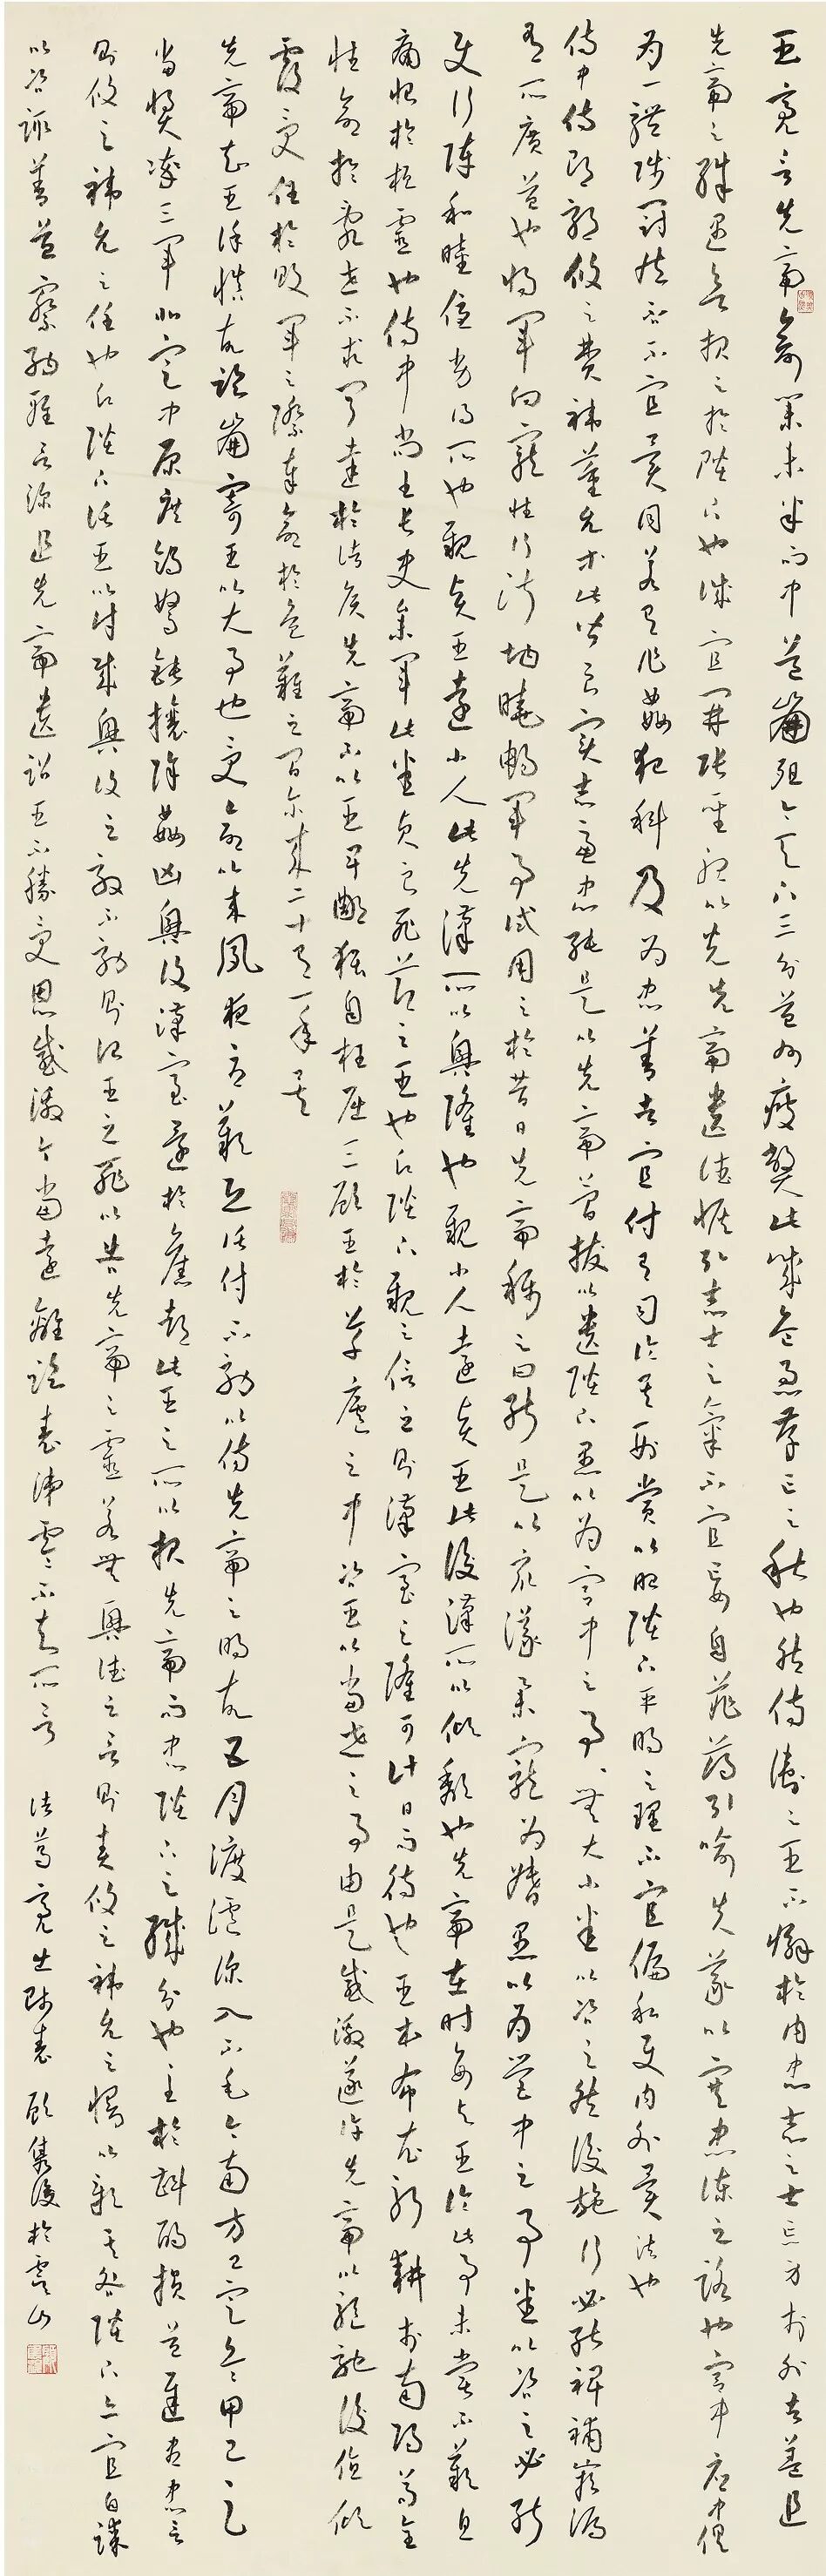 臣亮言先帝創業未半而中道崩殂今天下三分益州疲弊此誠危急存亡之秋也然侍衛之臣不懈於內忠志之士忘身於外者蓋追
先帝之殊遇欲報之於陛下也誠宜開張聖聽以光先帝遺德恢弘志士之氣不宜妄自菲薄引喻失義以塞忠諫之路也宮中府中俱
為一體陟罰臧否不宜異同若有作姦犯科及為忠善者宜付有司論其刑賞以昭陛下平明之理不宜偏私使內外異法也
侍中侍郎郭攸之費禕董允等此皆良實志慮忠純是以先帝簡拔以遺陛下愚以為宮中之事、無大小悉以咨之然後施行必能裨補闕漏
有所廣益也將軍向寵性行淑均曉暢軍事試用之於昔日先帝稱之曰能是以眾議舉寵為督愚以為營中之事悉以咨之必能
使行陣和睦優劣得所也親賢臣遠小人此先漢所以興隆也親小人遠賢臣此後漢所以傾頹也先帝在時每與臣論此事未嘗不歎息
痛恨於桓靈也侍中尚書長史參軍此悉貞良死節之臣也願陛下親之信之則漢室之隆可計日而待也臣本布衣躬耕於南陽苟全
性命於亂世不求聞達於諸侯先帝不以臣卑鄙猥自枉屈三顧臣於草廬之中咨臣以當世之事由是感激遂許先帝以驅馳後值傾
覆受任於敗軍之際奉命於危難之間爾來二十有一年矣
先帝知臣謹慎故臨崩寄臣以大事也受命以來夙夜憂歎恐託付不效以傷先帝之明故五月渡瀘深入不毛今南方已定兵甲已足
當獎率三軍北定中原庶竭駑鈍攘除姦凶興復漢室還於舊都此臣之所以報先帝而忠陛下之職分也至於斟酌損益進盡忠言
則攸之禕允之任也願陛下託臣以討賊興復之效不效則治臣之罪以告先帝之靈若無興德之言則責攸之禕允之慢以彰其咎陛下亦宜自謀
以咨諏善道察納雅言深追先帝遺詔臣不勝受恩感激今當遠離臨表涕零不知所言 諸葛亮出師表 顧雋後於虞山